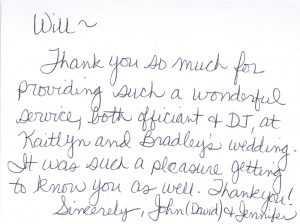 Will ~
Thank you so much for
providing such a wonderful
service, both officiant & DJ, at
Kaitlyn and Bradley's wedding.
It was such a pleasure getting
to know you as well. Thankyou!
Sincerely, John (David) & Jennifer